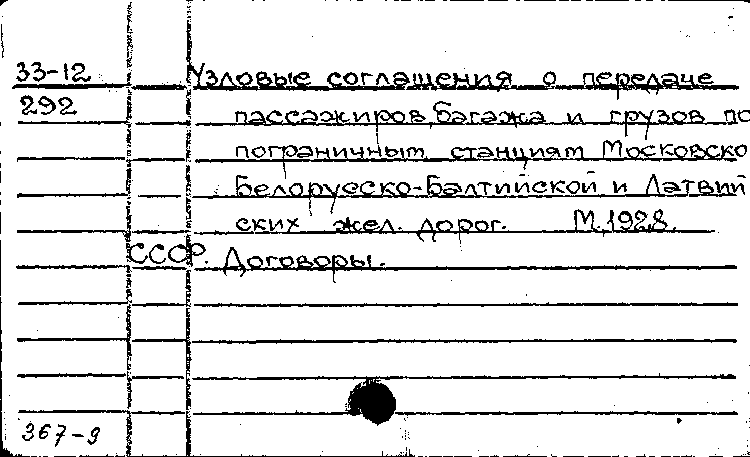 33-12 Узловые соглашения о передаче
292 пассажиров, багажа и грузов по
пограничным станциям Московско
Белорусско-Балтийской и Латвий
ских жел. дорог. М, 1928.
СССР. Договоры.
367-9